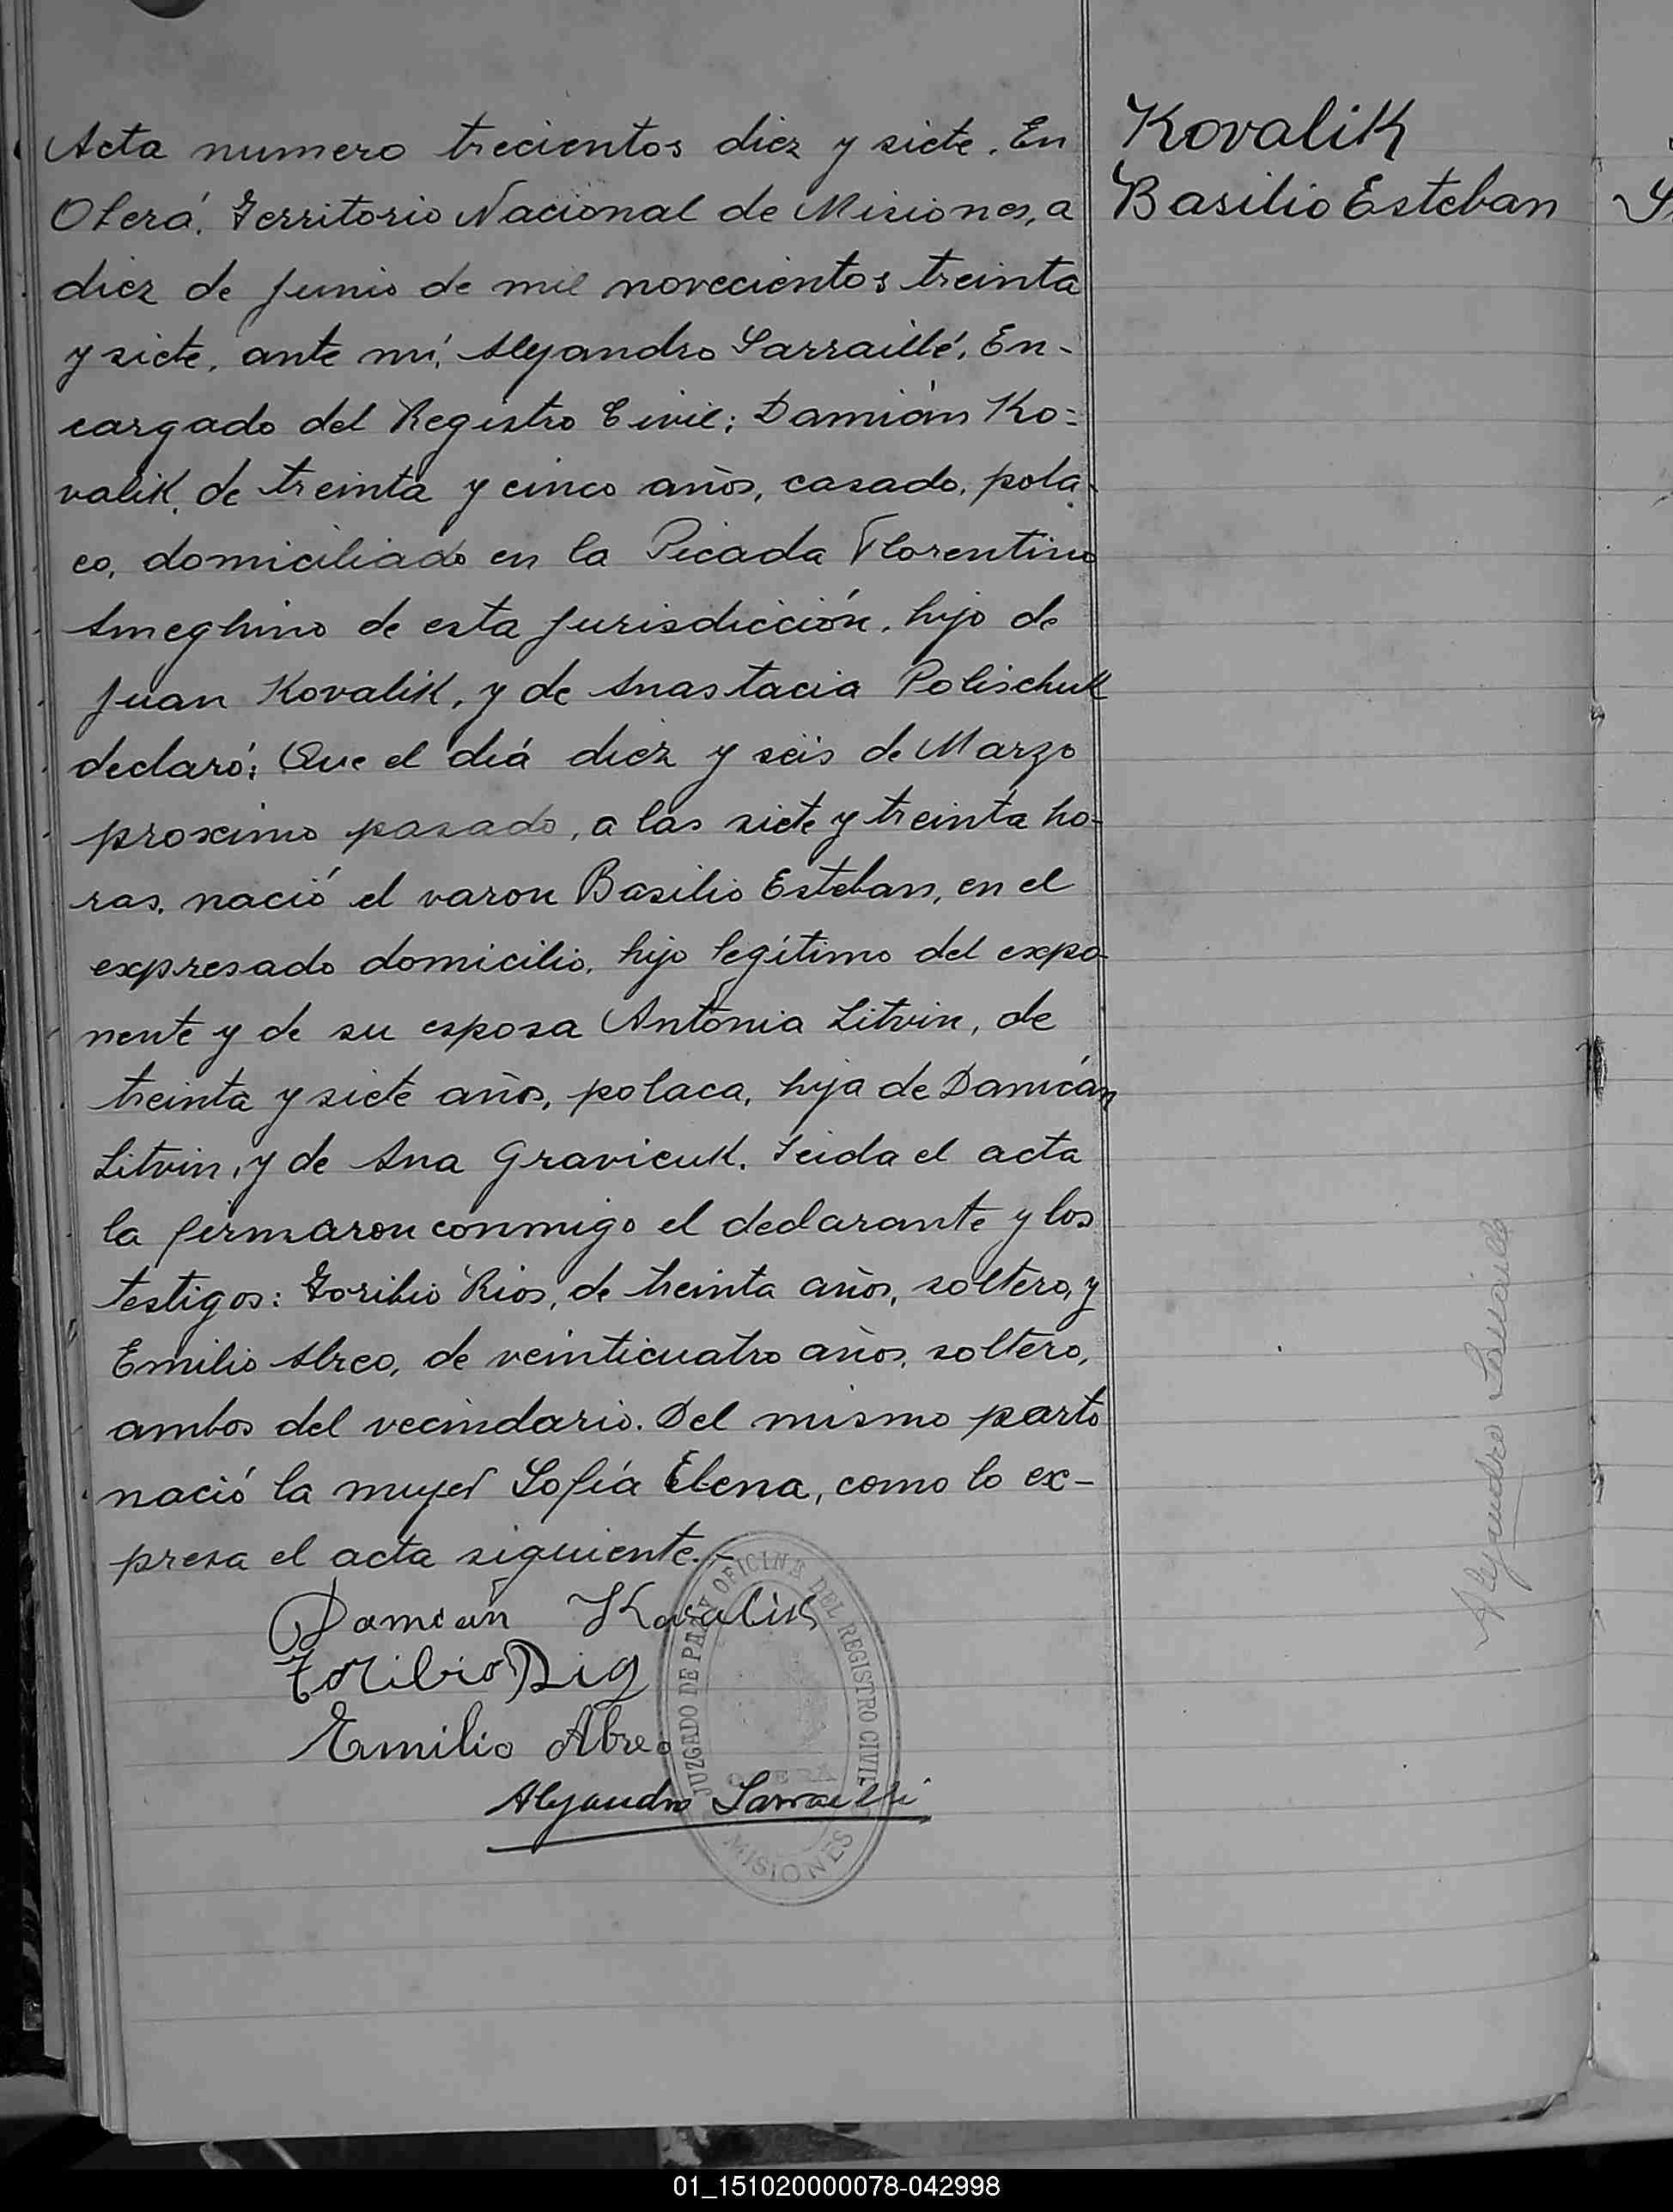 Acta numero trecientos diez y siete. En
Oberá, Territorio Nacional de Misiones, a
diez de Junio de mil novecientos treinta
y siete, ante mí, Alejandro Larraillé, En-
cargado del Registro Civil; Damián Ko=
valik, de treinta y cinco años, casado, pola-
co, domiciliado en la Picada Florentino
Ameghino de esta jurisdicción, hijo de
Juan Kovalik, y de Anastacia Polischuk
declaró: Que el día diez y seis de Marzo
proximo pasado, a las siete y treinta ho-
ras, nació el varon Basilio Esteban, en el
expresado domicilio, hijo legítimo del expo-
nente y de su esposa Antonia Litvin, de
treinta y siete años, polaca, hija de Damián
Litvin, y de Ana Gravicuk. Leida el acta
la firmaron conmigo el declarante y los
testigos: Toribio Rios, de treinta años, soltero, y
Emilio Abreo, de veinticuatro años, soltero,
ambos del vecindario. Del mismo parto
nació la mujer Sofía Elena, como lo ex-
presa el acta siguiente.-
Damian Kovalik
Toribio
Emilio Abreo
Alejandro Larraillé
JUZGADO DE PAZ Y OFICINA DEL REGISTRO CIVIL
OBERÁ
MISIONES
Kovalik
Basilio Esteban
01_151020000078-042998